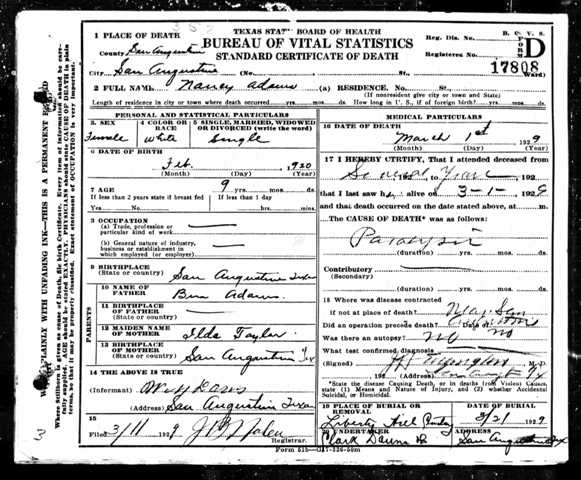 TEXAS STATE BOARD OF HEALTH
BUREAU OF VITAL STATISTICS
STANDARD CERTIFICATE OF DEATH
B. C. V. S.
FORM D
Reg. Dis. No.
Registered No. 17808
1 PLACE OF DEATH
County San Augustine
City San Augustine No. St. Ward)
2 FULL NAME Nancy Adams (a) RESIDENCE. No. St.
(If nonresident give city or town and State)
Length of residence in city or town where death occurred yrs. mos. ds. How long in U. S., if of foreign birth? yrs. mos. ds.
PERSONAL AND STATISTICAL PARTICULARS
3 SEX
Female
4 COLOR OR RACE
White
5 SINGLE, MARRIED, WIDOWED OR DIVORCED (write the word)
Single
6 DATE OF BIRTH
Feb. 1920
(Month) (Day) (Year)
7 AGE
9 yrs. mos. ds.
If less than 2 years state if breast fed If less than 1 day
Yes No hrs. mins.
8 OCCUPATION
(a) Trade, profession or
particular kind of work
(b) General nature of industry,
business or establishment in
which employed (or employer)
9 BIRTHPLACE
(State or country) San Augustine Texas
PARENTS
10 NAME OF FATHER Ben Adams
11 BIRTHPLACE OF FATHER
(State or country)
12 MAIDEN NAME OF MOTHER Ilda Taylor
13 BIRTHPLACE OF MOTHER
(State or country) San Augustine Tx
14 THE ABOVE IS TRUE
(Informant)
(Address) San Augustine Texas
15
Filed 3/11 1929
Registrar.
MEDICAL PARTICULARS
16 DATE OF DEATH
March 1st 1929
(Month) (Day) (Year)
17 I HEREBY CERTIFY, That I attended deceased from
Several to Years 192
that I last saw h alive on 3-1- 1929
and that death occurred on the date stated above, at m.
The CAUSE OF DEATH* was as follows:
Paralysis
(duration) yrs. mos. ds.
Contributory
(Secondary)
(duration) yrs. mos. ds.
18 Where was disease contracted
if not at place of death? Near San Augustine
Did an operation precede death? No Date of
Was there an autopsy? No
What test confirmed diagnosis
(Signed) M. D.
192 (Address) San Augustine Tx
*State the disease Causing Death, or in deaths from Violent Causes,
state (1) Means and Nature of Injury, and (2) whether Accidental
Suicidal, or Homicidal.
19 PLACE OF BURIAL OR REMOVAL
Liberty Hill
DATE OF BURIAL
3/2/ 1929
20 UNDERTAKER
Clark Downs
ADDRESS
San Augustine Tx
Form 515
WRITE PLAINLY WITH UNFADING INK—THIS IS A PERMANENT RECORD
3